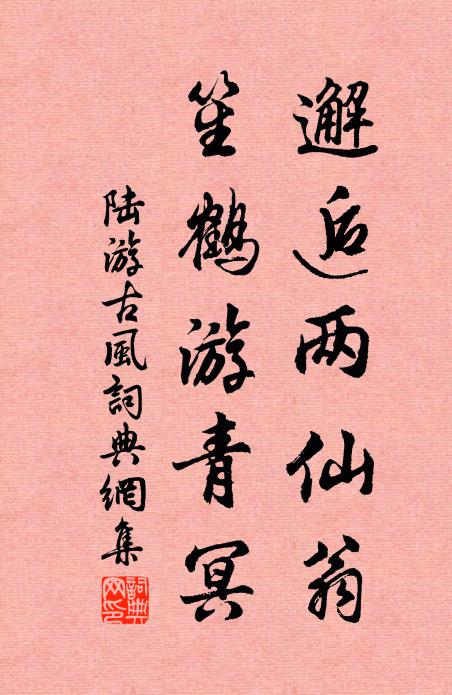 邂逅两仙翁
笙鹤游青冥
陆游古風詞典網集
詞典网印